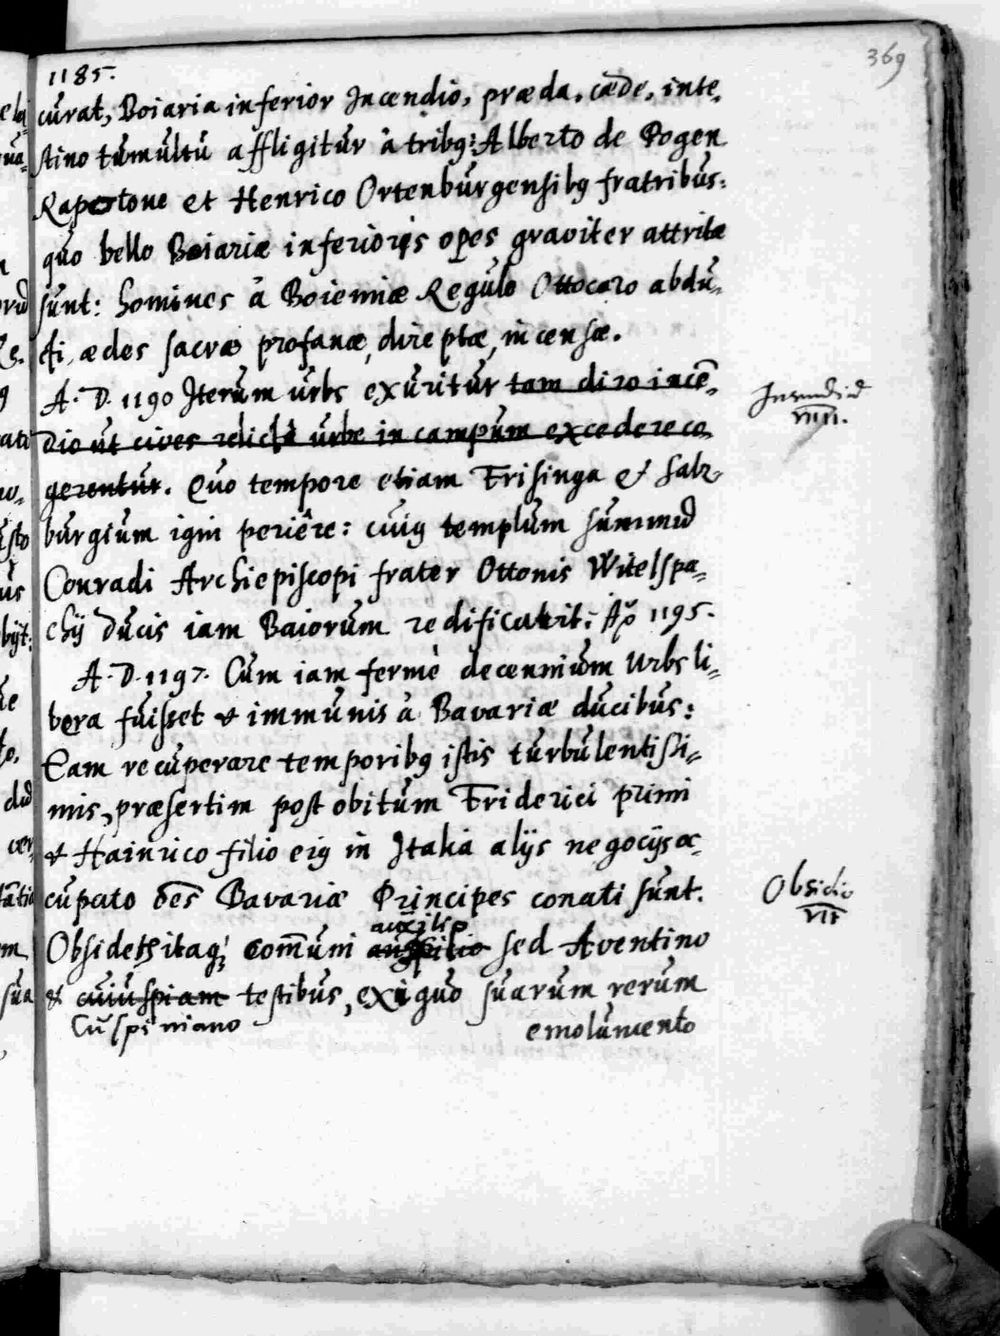 369
1185.
curat, Boiaria inferior Incendio, præda, cæde, inte„
stino tumultu affligitur à tribꝯ: Alberto de Bogen
Rapotone et Henrico Ortenburgensibꝯ fratribus:
quo bello Boiariæ inferioris opes graviter attritæ
sunt: homines à Boiemiæ Regulo Ottocaro abdu„
cti, ædes sacræ profanæ, direptæ, incensæ.
A. D. 1190 Iterum urbs exuritur tam diro incē„
dio ut cives relicta urbe in campum excedere co„
gerentur. Quo tempore etiam Frisinga & Salz„
burgium igni periêre: cuiꝯ templum summū
Conradi Archiepiscopi frater Ottonis Witelspa„
chij ducis iam Baiorum redificavit: Aō 1195.
A. D. 1197. Cum iam fermè decennium Urbs li„
bera fuisset & immunis à Bavariæ ducibus:
Eam recuperare temporibꝯ istis turbulentissi„
mis, præsertim post obitum Friderici primi
& Hainrico filio eiꝯ in Italia alijs negocijs oc„
cupato oēs Bavariæ Principes conati sunt.
auxilio
Obsidet itaqꝫ com̄uni auspitio sed Aventino
& cuiuspiam testibus, exiguo suarum rerum
Cuspiniano emolumento
Incendiū
VIIII.
Obsidio
VII